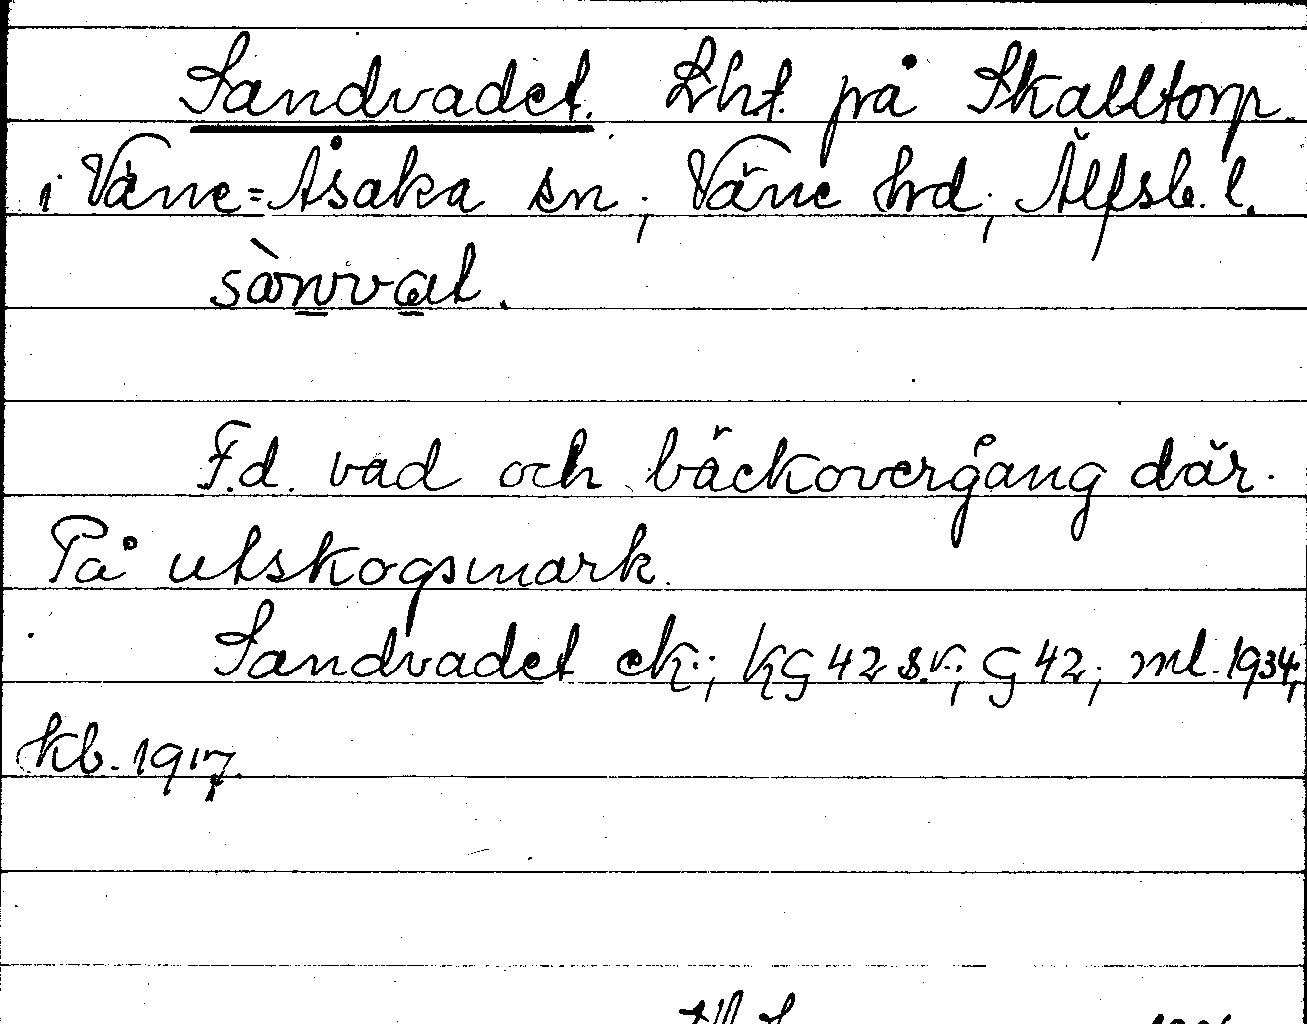 Sandvadet. Lht. på Skalltorp.
i Väne=Åsaka sn; Väne hd; Älfsb. l.
sànvat.
F.d. vad och bäckövergång där.
På utskogsmark.
Sandvadet ek.; KG 42 s.v.; G 42; ml. 1934;
kb. 1917.